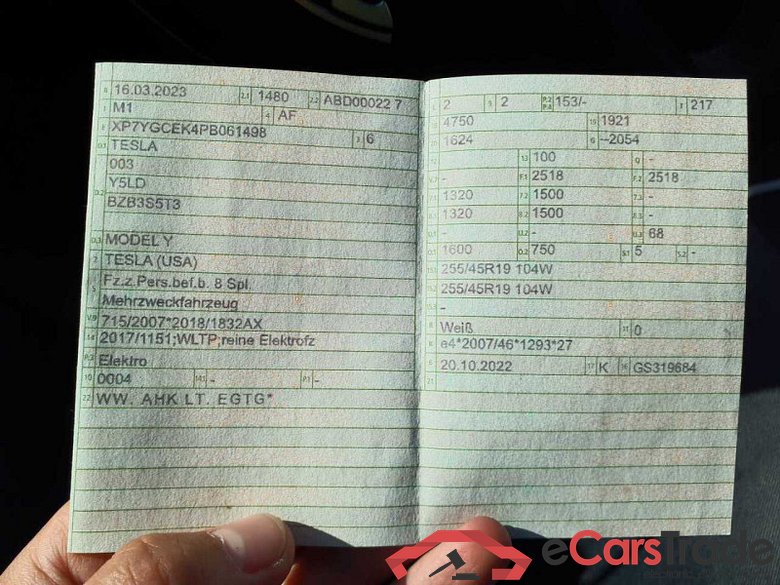 B 16.03.2023 2.1 1480 2.2 ABD00022 7
J M1 4 AF
E XP7YGCEK4PB061498 3 6
D.1 TESLA
003
D.2 Y5LD
BZB3S5T3
D.3 MODEL Y
2 TESLA (USA)
5 Fz.z.Pers.bef.b. 8 Spl.
Mehrzweckfahrzeug
V.9 715/2007*2018/1832AX
14 2017/1151;WLTP;reine Elektrofz
P.3 Elektro
10 0004 14.1 - P.1 -
22 WW. AHK LT. EGTG*
L 2 9 2 P.2 P.4 153/- T 217
18 4750 19 1921
20 1624 G --2054
12 - 13 100 Q -
- F.1 2518 F.2 2518
7.1 1320 7.2 1500 7.3 -
8.1 1320 8.2 1500 8.3 -
U.1 - U.2 - U.3 68
O.1 1600 O.2 750 S.1 5 S.2 -
15.1 255/45R19 104W
15.2 255/45R19 104W
15.3 -
R Weiß 11 0
K e4*2007/46*1293*27
6 20.10.2022 17 K 16 GS319684
21
eCarsTrade